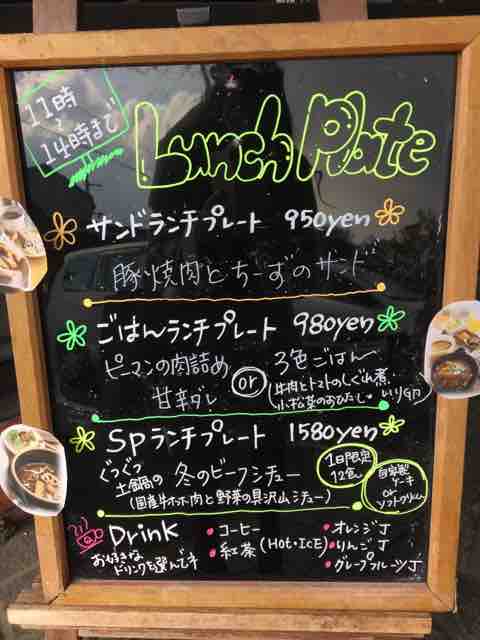 11時
〜
14時まで
Lunch Plate
サンドランチプレート 950yen
豚焼肉とちーずのサンド
ごはんランチプレート 980yen
ピーマンの肉詰め
甘辛ダレ
or
3色ごはん
牛肉とトマトのしぐれ煮
小松菜のおひたし
いり卵
SPランチプレート 1580yen
ぐつぐつ
土鍋の 冬のビーフシチュー
(国産牛ホホ肉と野菜の具沢山シチュー)
1日限定
12食
自家製
ケーキ
or
ソフトクリーム
Drink
お好きな
ドリンクを選んでネ
・コーヒー
・紅茶 (Hot・IcE)
・オレンジJ
・りんごJ
・グレープフルーツJ